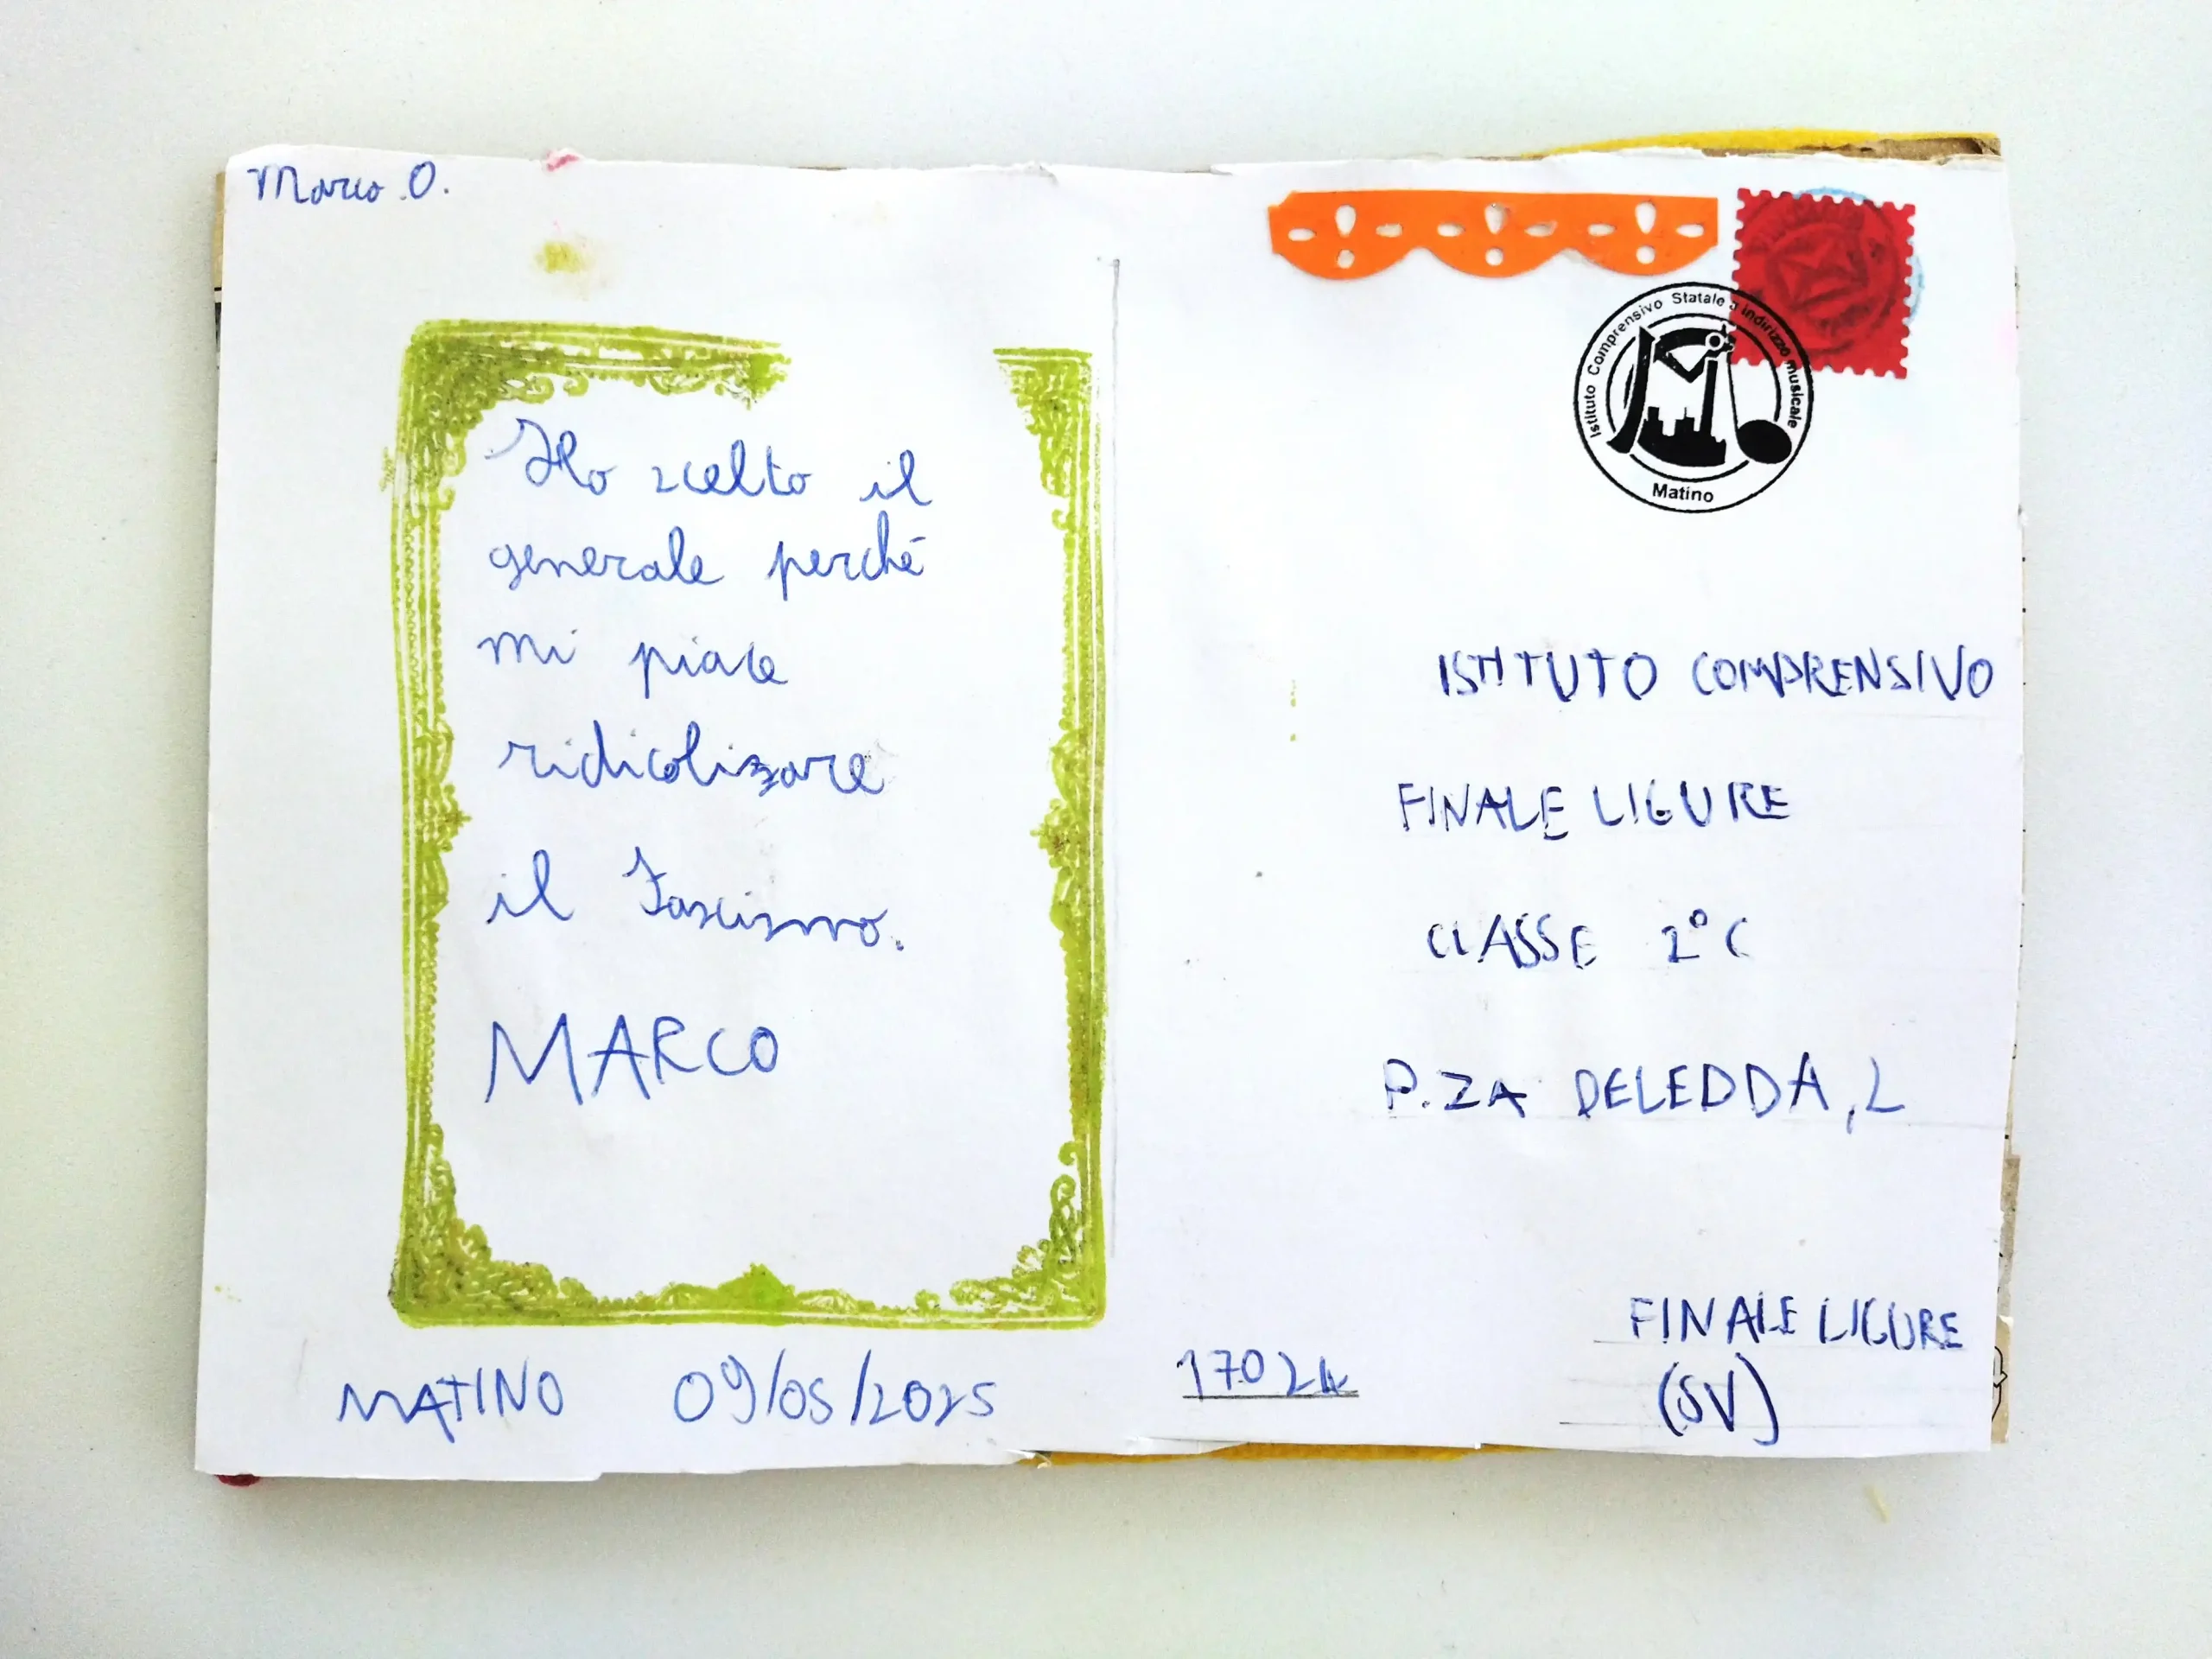 Marco O.
Ho scelto il
generale perché
mi piace
ridicolizzare
il Fascismo.
MARCO
MATINO 09/05/2025
Istituto Comprensivo Statale a indirizzo musicale
Matino
ISTITUTO COMPRENSIVO
FINALE LIGURE
CLASSE 2°C
P.ZA DELEDDA, 2
17024 FINALE LIGURE
(SV)